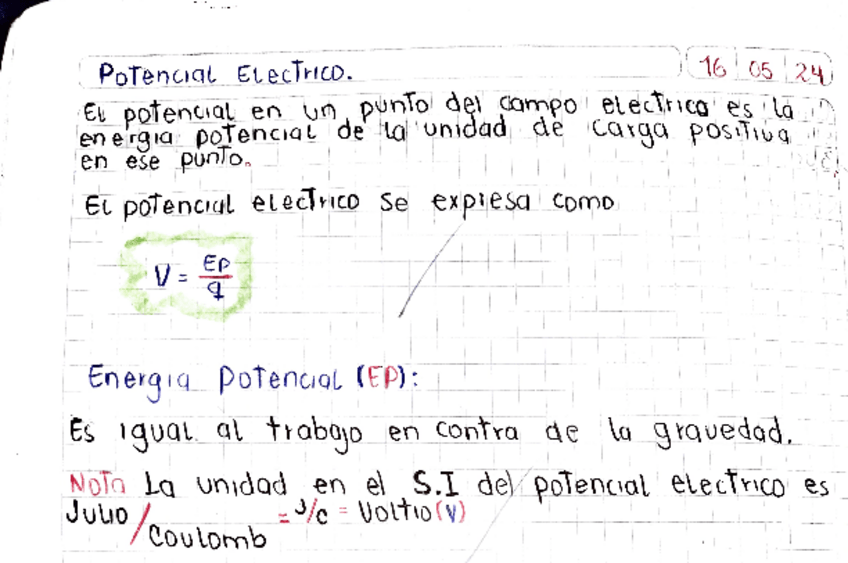 Potencial Electrico.
16 05 24
El potencial en un punto del campo electrico es la
energia potencial de la unidad de carga positiva
en ese punto.
El potencial electrico se expresa como
V = Ep/q
Energia potencial (EP):
Es igual al trabajo en contra de la gravedad.
Nota La unidad en el S.I del potencial electrico es
Julio/Coulomb = J/c = Voltio (V)